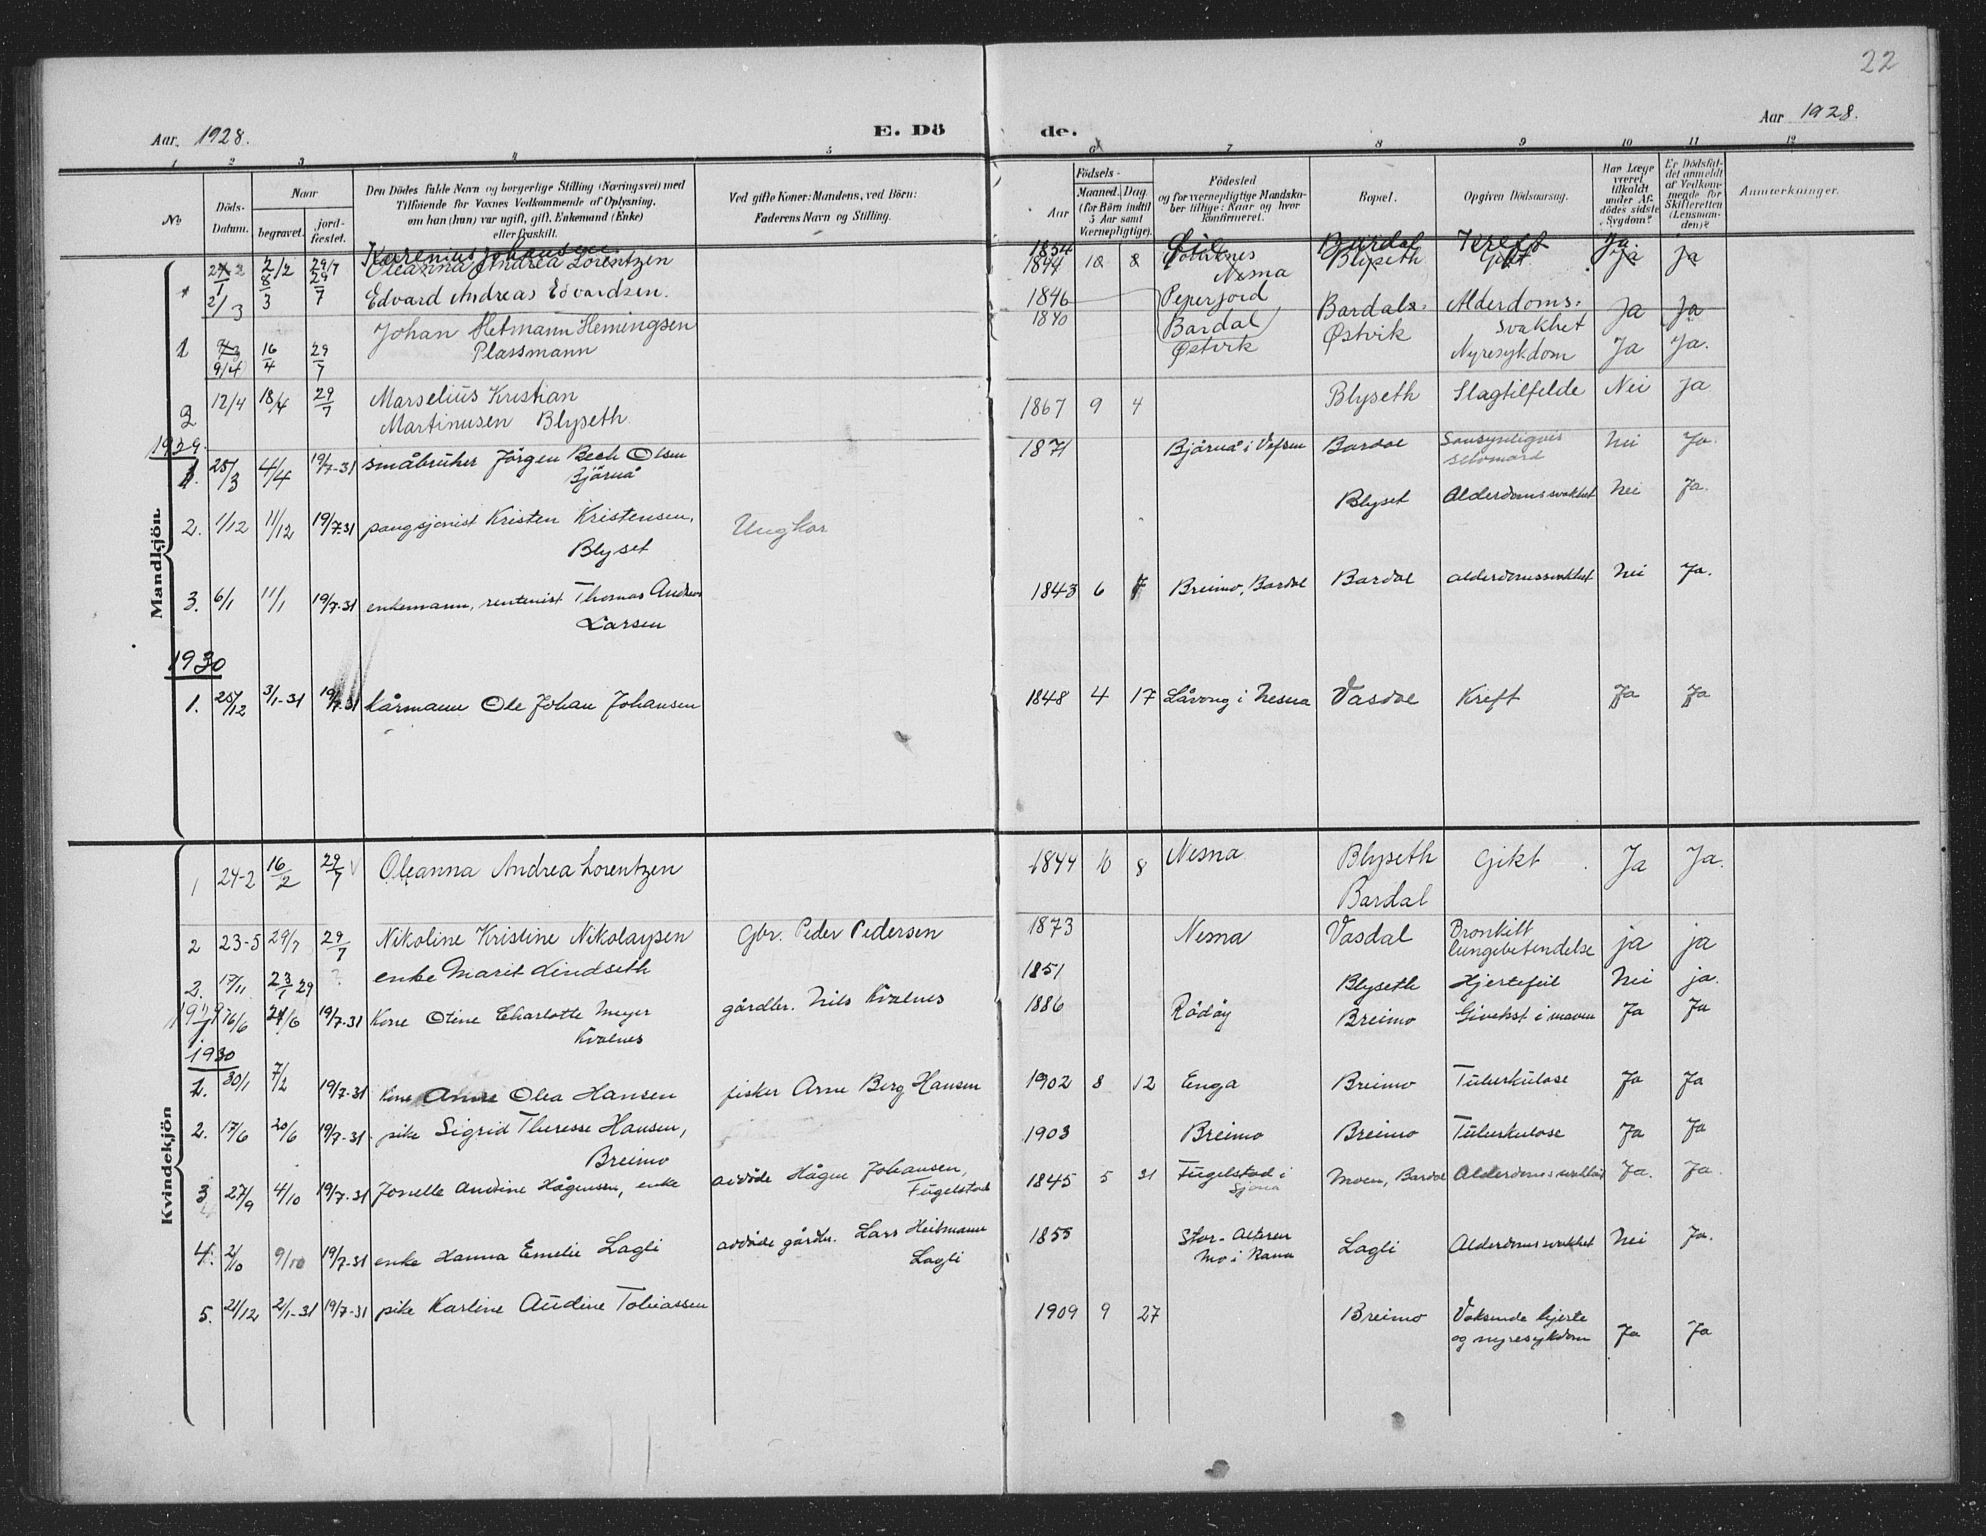 22
Aar. 1928. E. Dö de. Aar 1928.
1 2 3 4 5 6 7 8 9 10 11 12
No Döds-Datum. Naar begravet. jordfæstet. Den Dödes fulde Navn og borgerlige Stilling (Næringsvei) med Tilföiende for Voxnes Vedkommende af Oplysning, om han (hun) var ugift, gift, Enkemand (Enke) eller fraskilt. Ved gifte Koner: Mandens, ved Börn: Faderens Navn og Stilling. Födsels- Aar Maaned. Dag. (for Börn indtil 5 Aar samt Værnepligtige). Födested og for værnepligtige Mandskaber tillige: Naar og hvor konfirmeret. Bopæl. Opgiven Dödsaarsag. Har Læge været tilkaldt under Afdödes sidste Sygdom? Er Dödsfaldet anmeldt af Vedkommende for Skifteretten (Lensmanden)? Anmærkninger.
Mandkjön.
Karenius Johansen 1854 Bardal Kreft Ja
Oleanna Andrea Lorentzen 1844 10 8 Nesna Blyseth Gikt Ja Ja
2/3 8/3 29/7 Edvard Andreas Edvardsen. 1846 Peperjord Bardal Bardals. Alderdoms. svakhet Ja Ja
1 9/4 16/4 29/7 Johan Hetmann Hemingsen Plassmann 1840 Østvik Østvik Nyresykdom Ja Ja.
2 12/4 18/4 29/7 Marselius Kristian Martinusen Blyseth. 1867 9 4 Blyseth Slagtilfelde Nei Ja
1929.
1. 25/3 4/4 19/7-31 småbruker Jörgen Bech Olsen Bjårnå 1871 Bjårnå i Vefsen Bardal Sansynligvis selvmord Nei Ja.
2. 1/12 11/12 19/7-31 pangsjonist Kristen Kristensen, Blyset Ungkar Blyset Alderdomssvakhet Nei Ja.
3. 6/1 11/1 19/7-31 enkemann, rentenist Thomas Andreas Larsen 1843 6 7 Breimo, Bardal Bardal alderdomssvakhet Nei Ja.
1930
1. 25/12 3/1-31 19/7-31 kårmann Ole Johan Johansen 1848 4 17 Låvong i Nesna Vasdal Kreft Ja Ja
Kvindekjön
1 24-2 16/2 29/7 Oleanna Andrea Lorentzen 1844 10 8 Nesna Blyseth Bardal Gikt Ja Ja.
2 23-5 29/7 29/7 Nikoline Kristine Nikolaysen Gbr. Peder Pedersen 1873 Nesna Vasdal Bronkitt lungebetendelse ja ja
2. 17/11 23/1 29 ? enke Marit Lindseth 1851 Blyseth Hjertefeil Nei ja.
1929
16/6 24/6 19/7-31 Kone Otine Charlotte Meyer Kvalnes gårdbr. Nils Kvalnes 1886 Rødøy Breimo Givekst i maven Ja Ja
1930
1. 30/1 7/2 19/7-31 Kone Anne Olea Hansen fisker Arne Berg Hansen 1902 8 12 Enga Breimo Tuberkulose Ja Ja
2. 17/6 20/6 19/7-31. pike Sigrid Therese Hansen, Breimo 1903 Breimo Breimo Tuberkulose Ja Ja
3 27/9 4/10 19/7-31 Jonelle Andine Hågensen, enke avdøde Hågen Johansen, Fugelstad 1845 5 31 Fugelstad i Sjona Moen, Bardal Alderdomssvakhet Ja. Ja.
4. 2/10 9/10 19/7-31 enke Hanna Emelie Lagli avdøde gårdbr. Lars Heitmann Lagli 1855 Stor-Alteren Mo i Rana Lagli Alderdomssvakhet Nei Ja.
5. 21/12 2/1-31 19/7-31 pike Karline Audine Tobiassen 1909 9 27 Breimo Voksende hjerte og nyresykdom Ja Ja